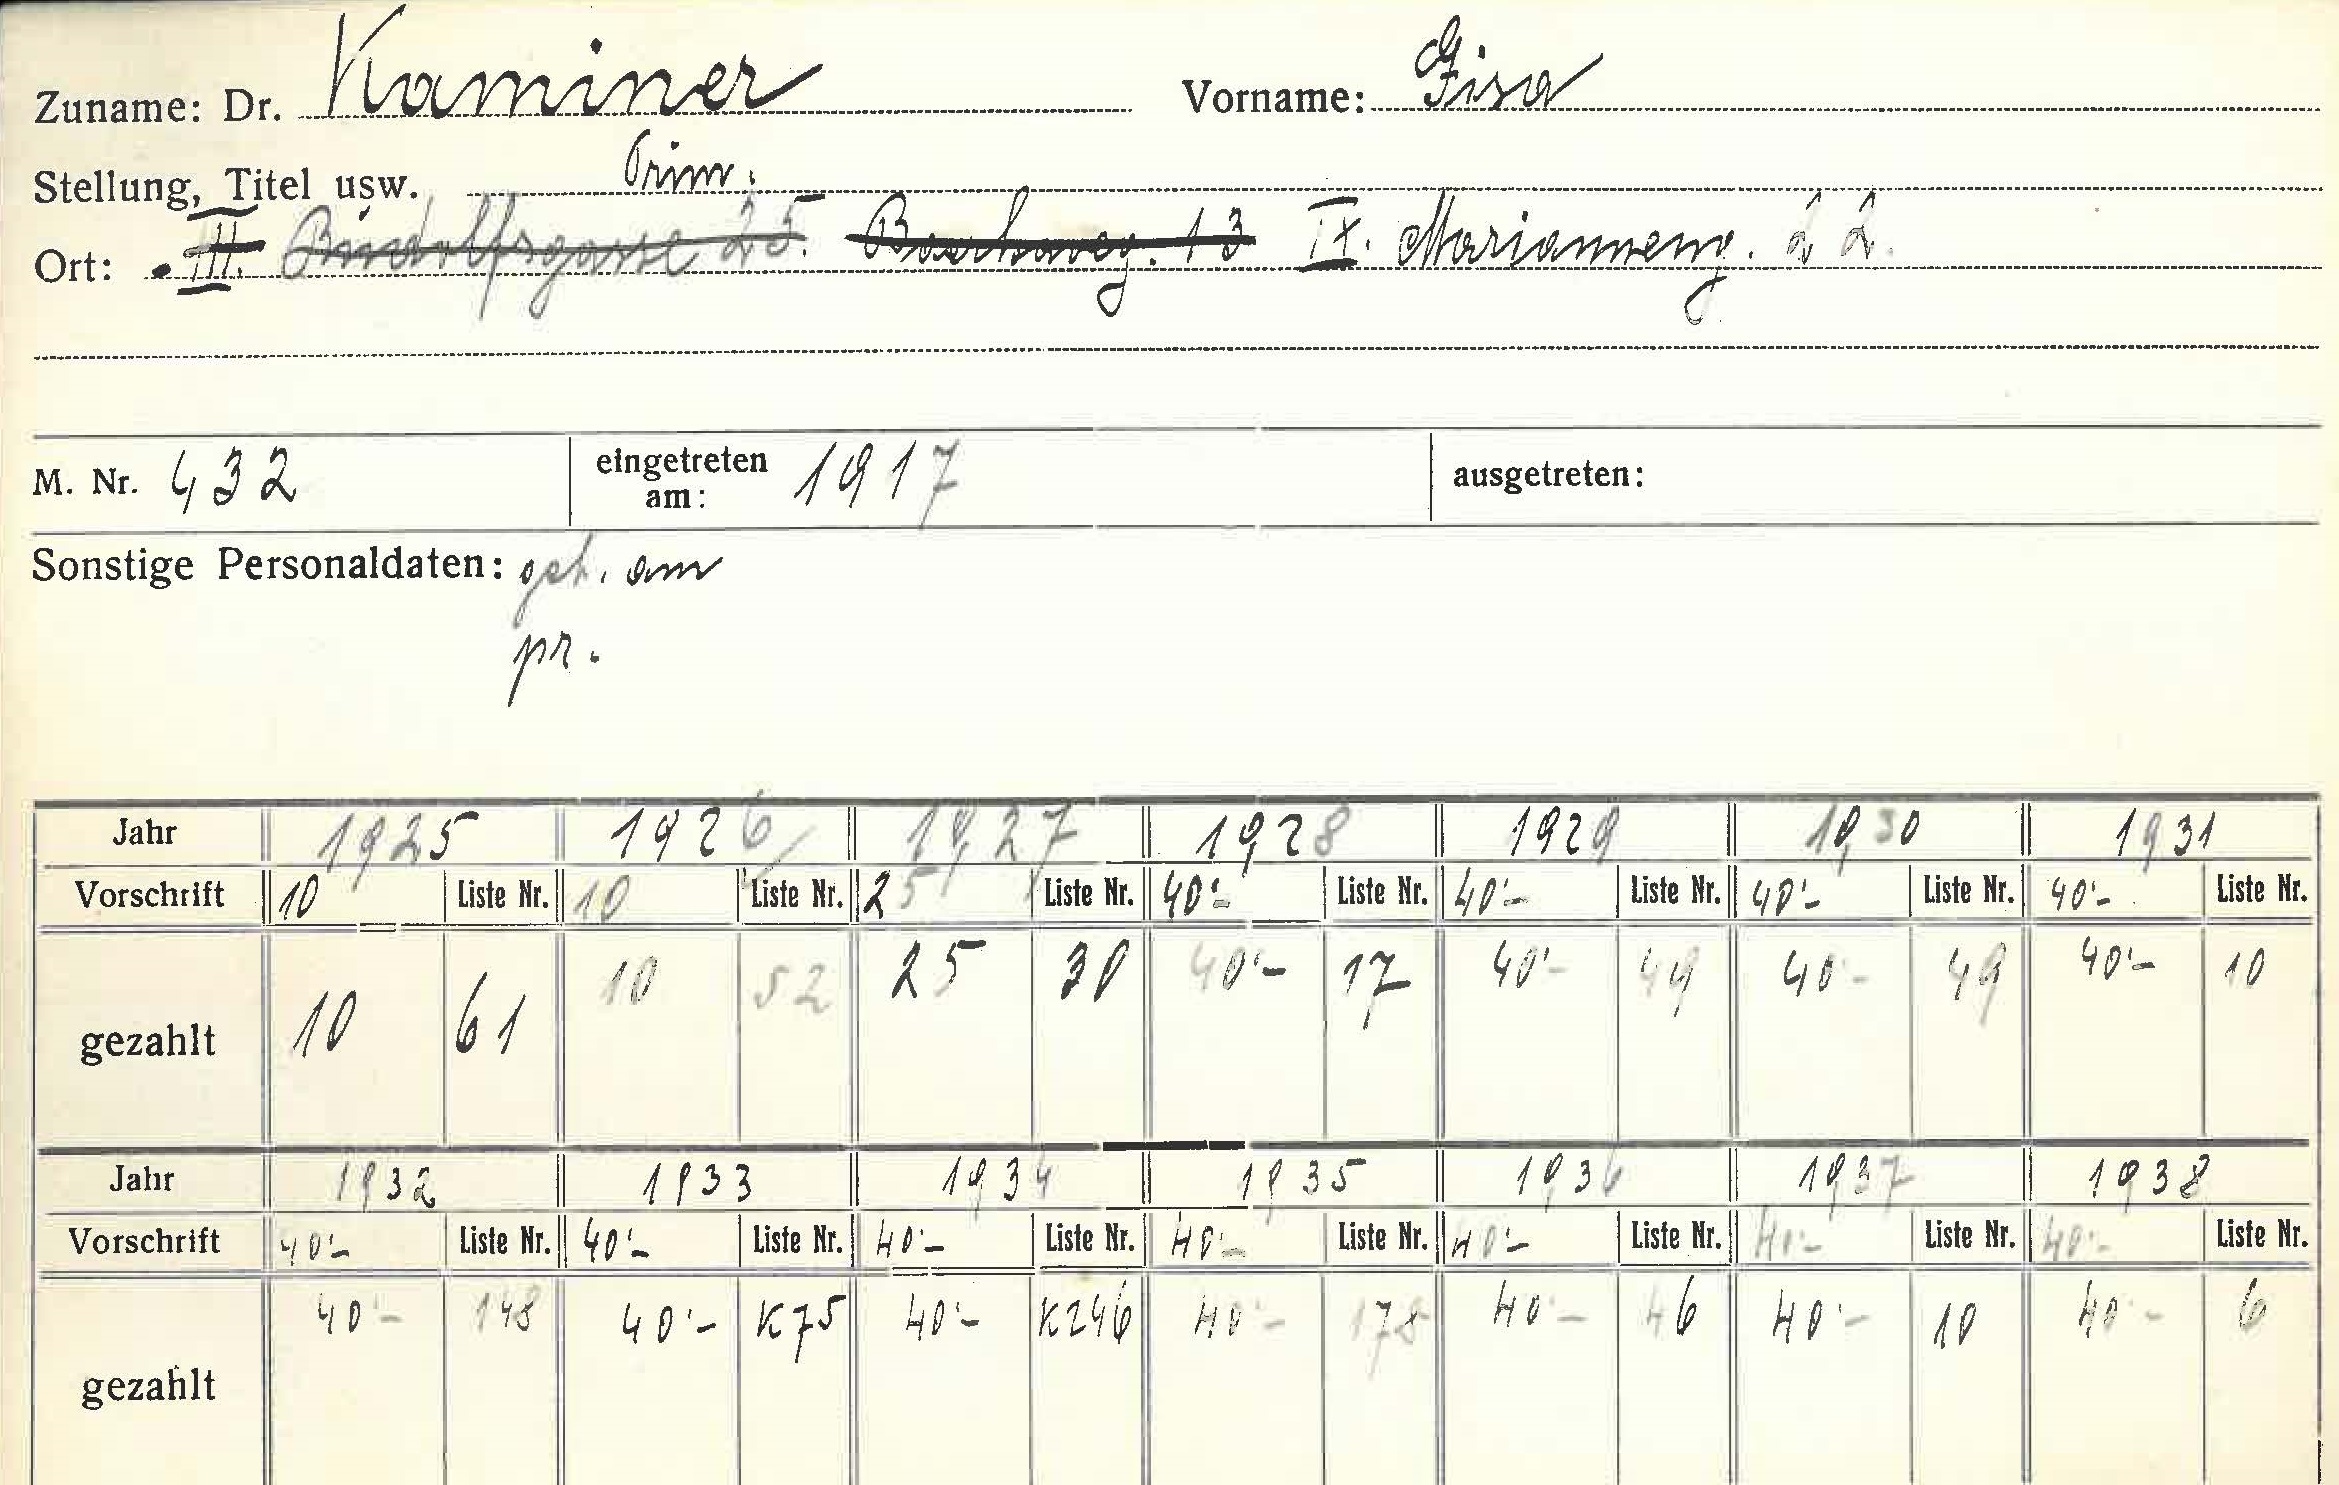 Zuname: Dr. Kaminer Vorname: Gisa
Stellung, Titel usw. Prim.
Ort: III. 25. 13 IX. Marianneng.
M. Nr. 432 eingetreten am: 1917 ausgetreten:
Sonstige Personaldaten: geb. am
pr.
Jahr 1925 1926 1927 1928 1929 1930 1931
Vorschrift 10 Liste Nr. 10 Liste Nr. 25 Liste Nr. 40'- Liste Nr. 40'- Liste Nr. 40'- Liste Nr. 40'- Liste Nr.
gezahlt 10 61 10 52 25 30 40'- 17 40'- 49 40- 49 40'- 10
Jahr 1932 1933 1934 1935 1936 1937 1938
Vorschrift 40'- Liste Nr. 40'- Liste Nr. 40'- Liste Nr. 40'- Liste Nr. 40'- Liste Nr. 40'- Liste Nr. 40'- Liste Nr.
gezahlt 40'- 148 40'- K75 40'- K246 40'- 178 40'- 46 40'- 10 40'- 6